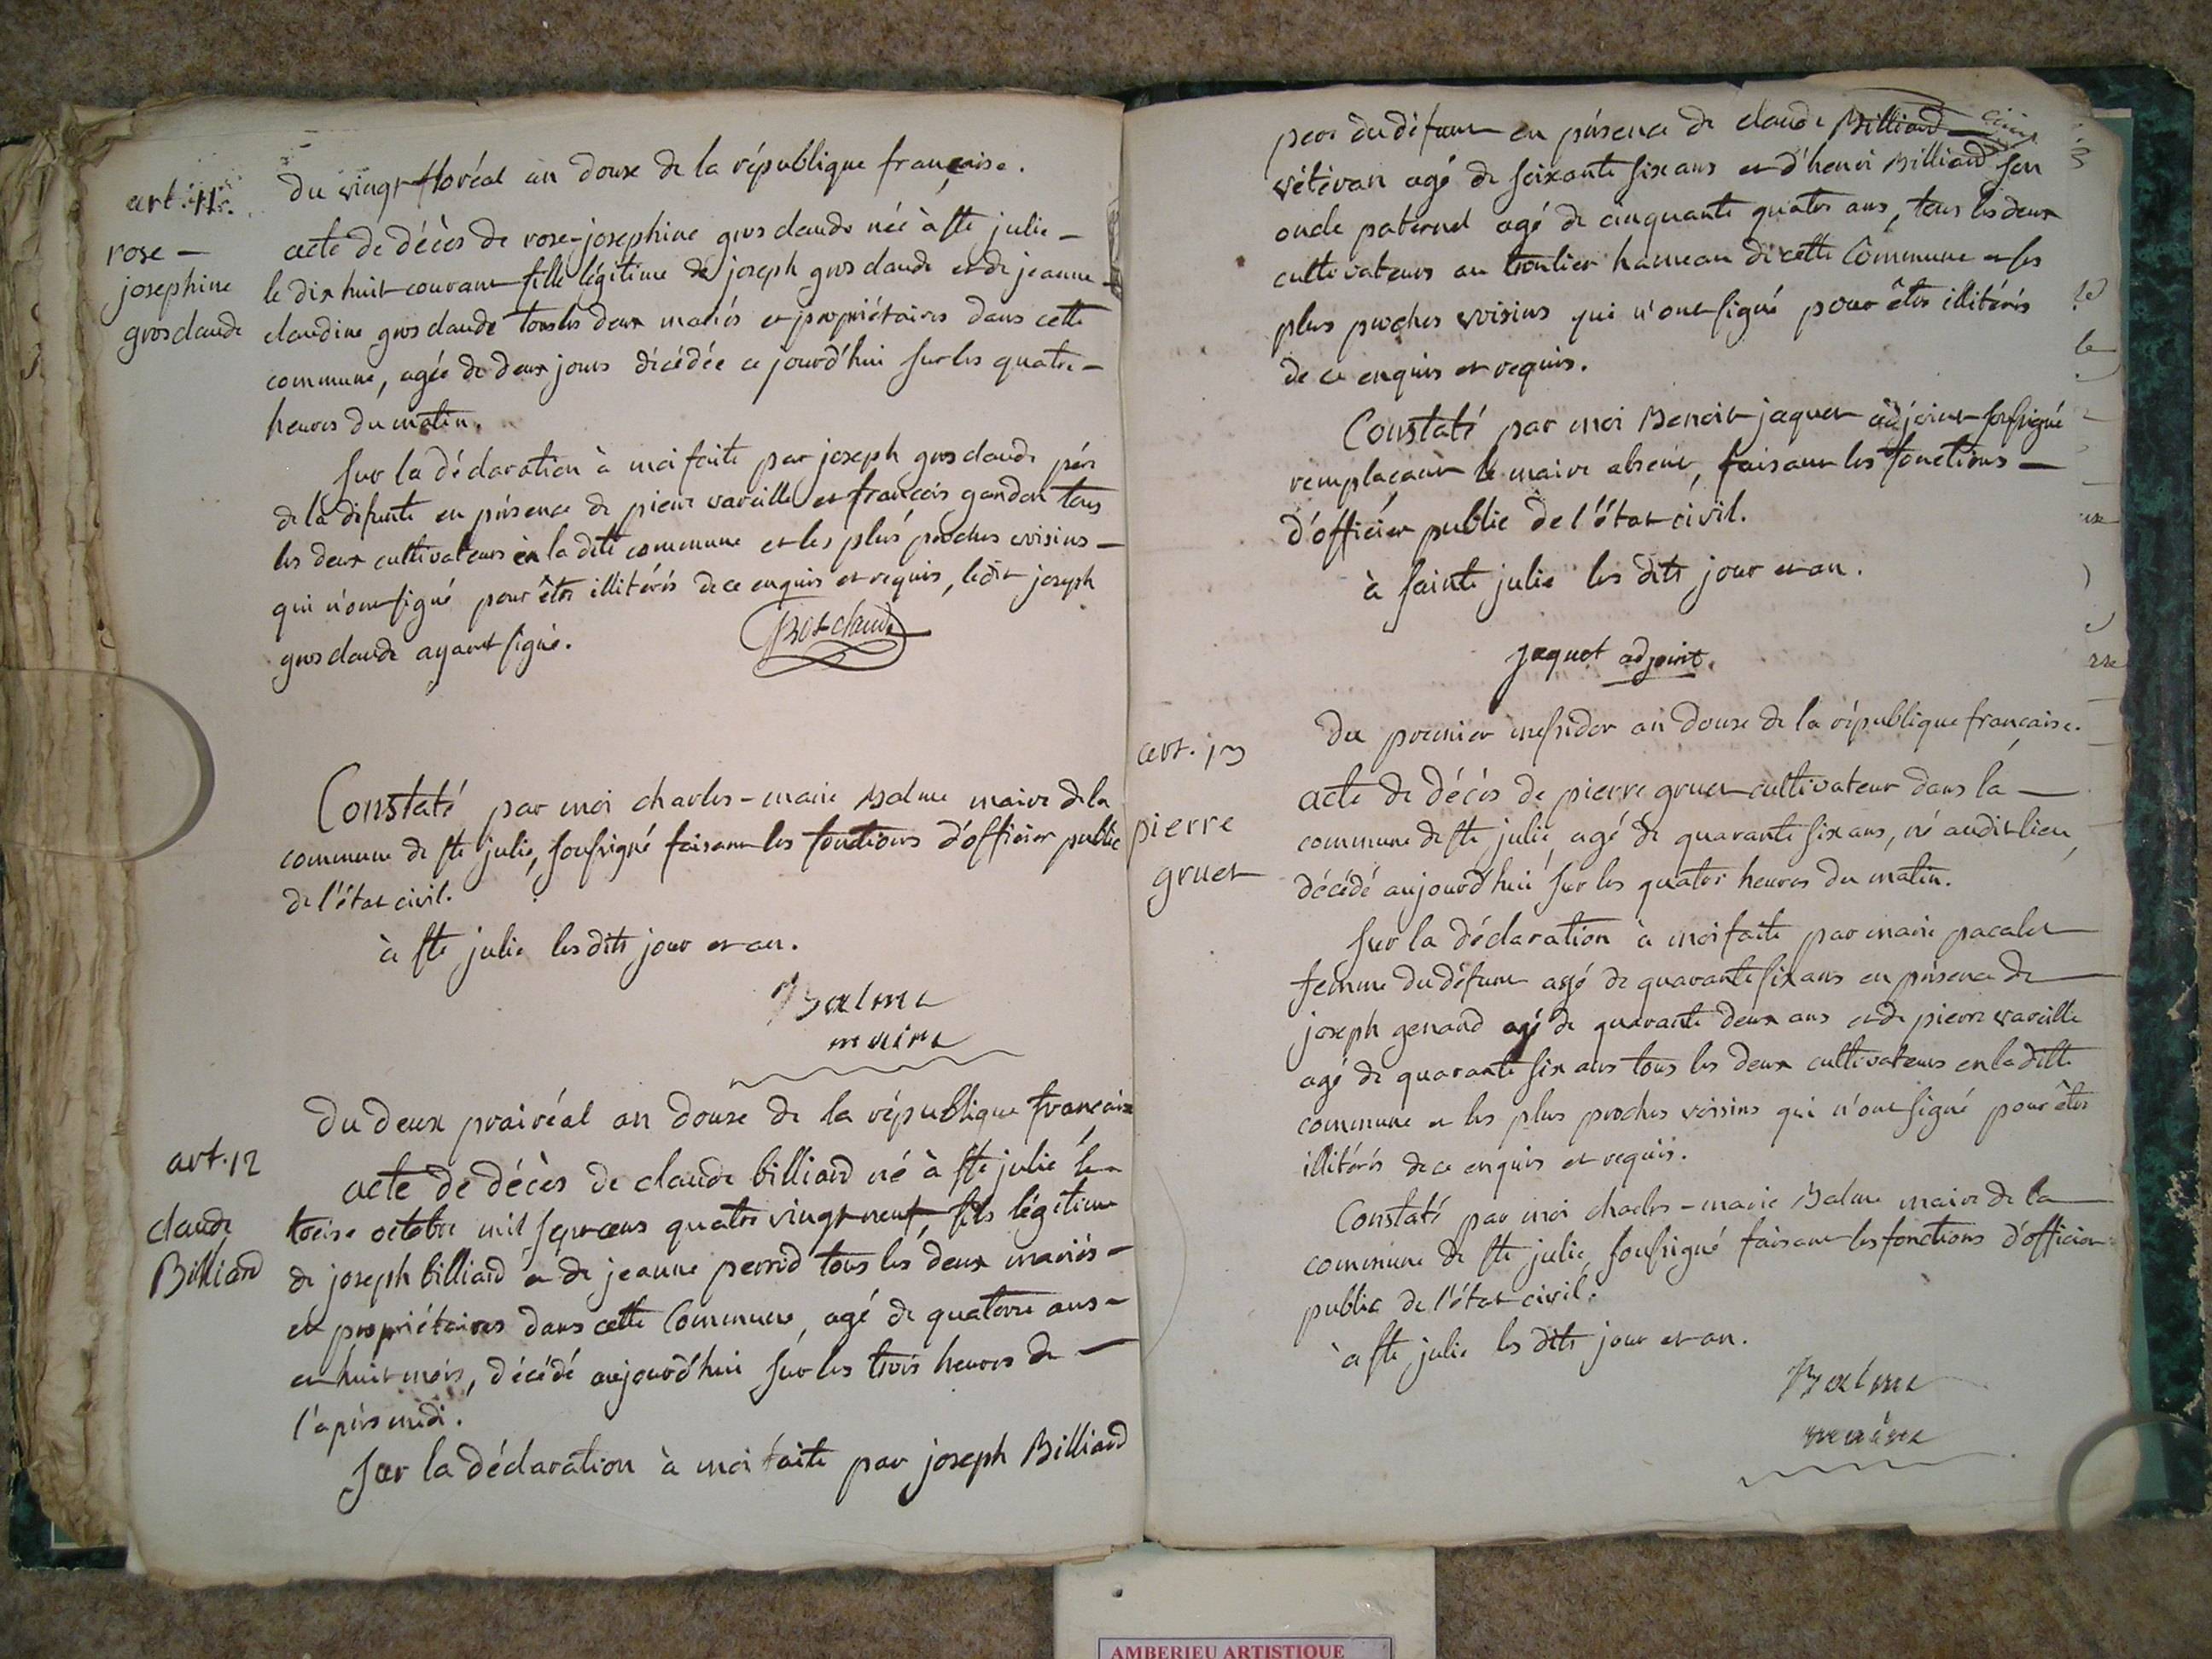 art. 11.
rose -
josephine
grosclaude
du vingt floréal an douze de la république française.
acte de décès de rose-josephine gros claude née à ste julie -
le dix huit courant fille légitime de joseph gros claude et de jeanne -
claudine gros claude tous les deux mariés et propriétaires dans cette
commune, agée de deux jours décédée ce jourd'hui sur les quatre -
heures du matin.
sur la déclaration à moi faite par joseph gros claude père
de la défunte en présence de pierre vareille et françois gandon tous
les deux cultivateurs en la dite commune et les plus proches voisins -
qui n'ont signé pour être illitérés de ce enquis et requis, ledit joseph
gros claude ayant signé.
Grosclaude
Constaté par moi charles-marie Balme maire de la
commune de ste julie, soussigné faisant les fonctions d'officier public
de l'état civil.
à ste julie les dits jour et an.
Balme
maire
art. 12
claude
Billiard
du deux prairéal an douze de la république française
acte de décès de claude billiard né à ste julie le -
treize octobre mil sept cens quatre vingt neuf, fils légitime
de joseph billiard et de jeanne perrod tous les deux mariés -
et propriétaires dans cette Commune, agé de quatorze ans -
et huit mois, décédé aujourd'hui sur les trois heures de -
l'après midi.
sur la déclaration à moi faite par joseph Billiard
pere du défunt en présence de claude Billiard
vétéran agé de soixante six ans et d'henri Billiard son
oncle paternel agé de cinquante quatre ans, tous les deux
cultivateurs au hameau de cette Commune et ses
plus proches voisins qui n'ont signé pour être illitérés
de ce enquis et requis.
Constaté par moi Benoit jaquet adjoint soussigné
remplaçant le maire absent, faisant les fonctions -
d'officier public de l'état civil.
à sainte julie les dits jour et an.
jaquet adjoint.
art. 13
pierre
gruet
du premier messidor an douze de la république française.
acte de décès de pierre gruet cultivateur dans la -
commune de ste julie, agé de quarante six ans, né audit lieu,
décédé aujourd'hui sur les quatre heures du matin.
sur la déclaration à moi faite par marie pacalet
femme du défunt agé de quarante six ans en présence de
joseph genaud agé de quarante deux ans et de pierre vareille
agé de quarante six ans tous les deux cultivateurs en la ditte
commune et les plus proches voisins qui n'ont signé pour être
illitérés de ce enquis et requis.
Constaté par moi charles-marie Balme maire de la
commune de ste julie, soussigné faisant les fonctions d'officier
public de l'état civil.
à ste julie les dits jour et an.
Balme
maire
AMBERIEU ARTISTIQUE